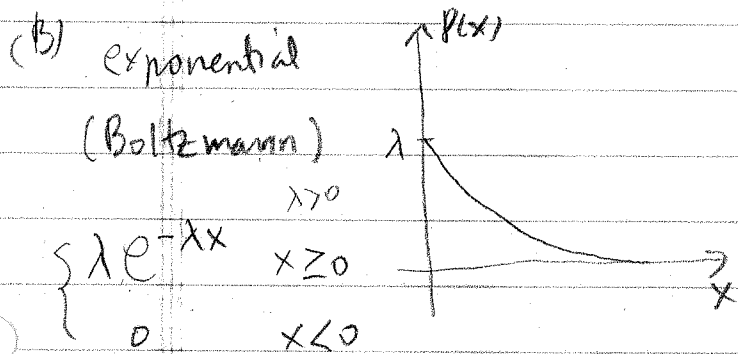 (B) exponential
(Boltzmann)
λ>0
{ λe^{-λx} x≥0
0 x<0
P(x)
λ
x